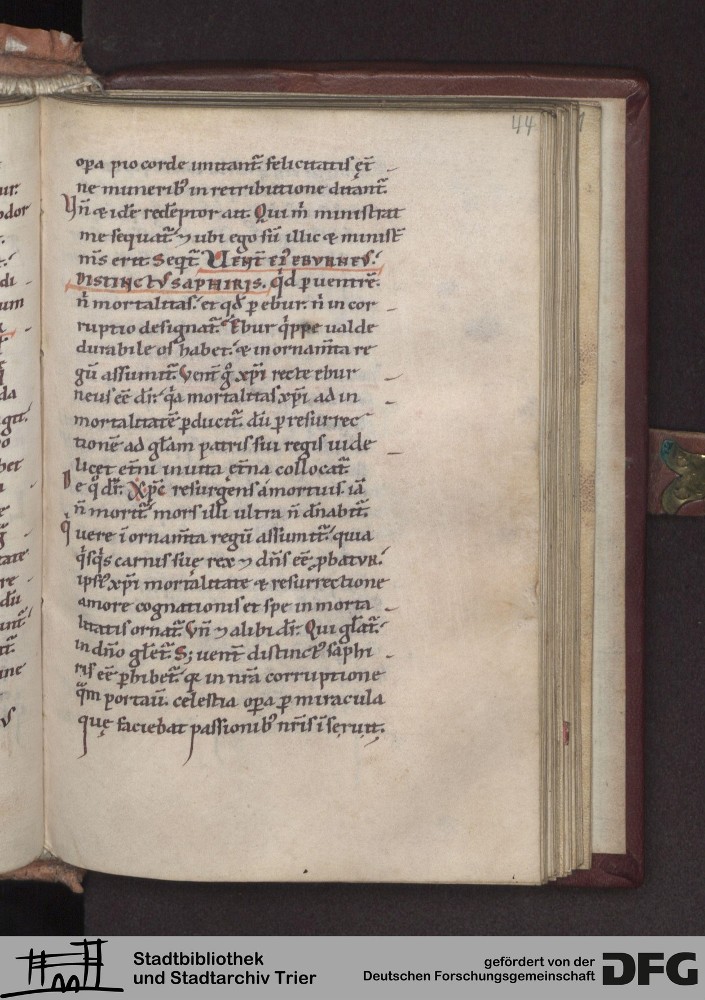 44
opa pio corde imitant̄ felicitatis et̄
ne munerib; in retributione ditant̄.
Vn̄ & idē redēptor ait. Qui m̄ ministrat
me sequat̄. ⁊ ubi ego sū illic & minist̄
m̄s erit. Seqt̄ VENT̄ EI᾽ EBVRNEVS.
DISTINCTVS SAPHIRIS. qd̄ p uentrē.
n̄ mortalitas. et qd̄ p ebur. n̄ incor
ruptio designat̄. Ebur q̄ppe ualde
durabile os habet. & in ornam̄ta re
gū assumit̄. Vent̄ g° xp̄i recte ebur
neus eē dr̄. q̄a mortalitas xp̄i ad in
mortalitatē pducit̄. dū p resurrec
tionē ad gl̄am patris sui regis uide
licet et̄ni in uita et̄na collocat̄
De q° dr̄. Xp̄c resurgens a mortuis. iā
n̄ morit̄. mors illi ultra n̄ dn̄abit̄.
uere ī ornam̄ta regū assumit̄. quia
q̄sq̄s carnis suę rex ⁊ dn̄s eē pbatvr.
ips᾽ xp̄i mortalitate & resurrectione
amore cognationis et spe inmorta
litatis ornat̄. Vn̄ ⁊ alibi dr̄. Qui gl̄at̄.
in dn̄o gl̄et̄. S; uent̄ distinct᾽ saphi
ris eē phibet̄. q̄ in nr̄a corruptione
q̄m portau̅. celestia opa p miracula
quę faciebat passionib; nr̄is īseruit.
Stadtbibliothek
und Stadtarchiv Trier
gefördert von der
Deutschen Forschungsgemeinschaft
DFG